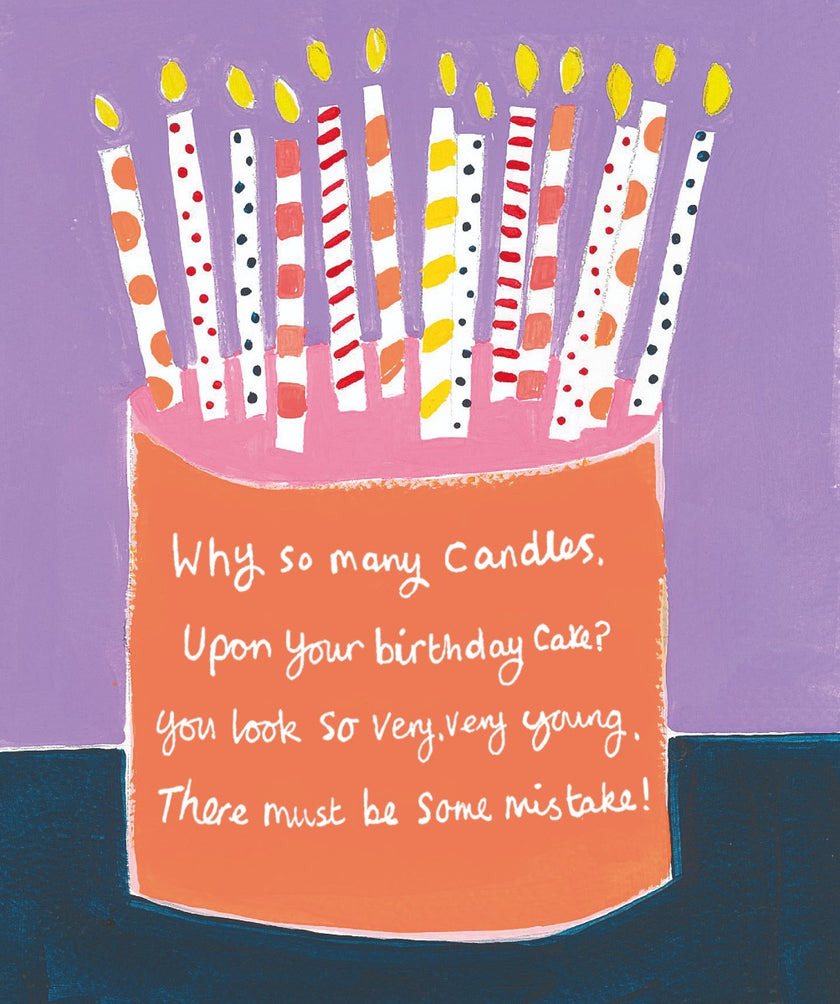 Why so many Candles.
Upon your birthday Cake?
you look so very, very young.
There must be some mistake!